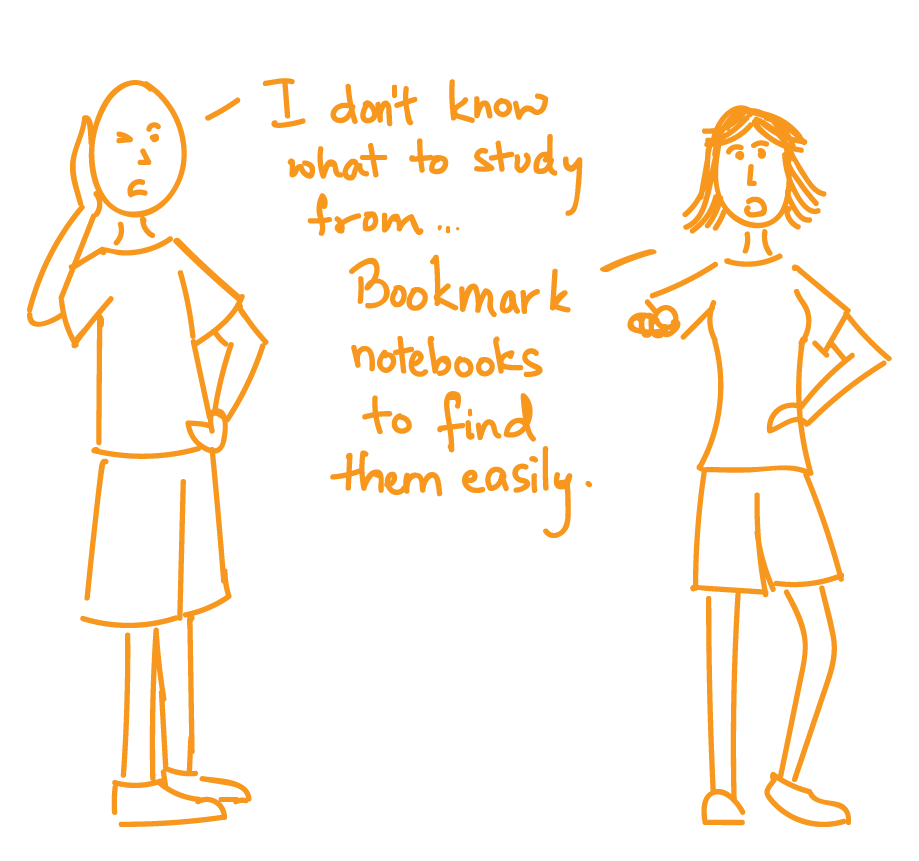 I don't know
what to study
from...
Bookmark
notebooks
to find
them easily.